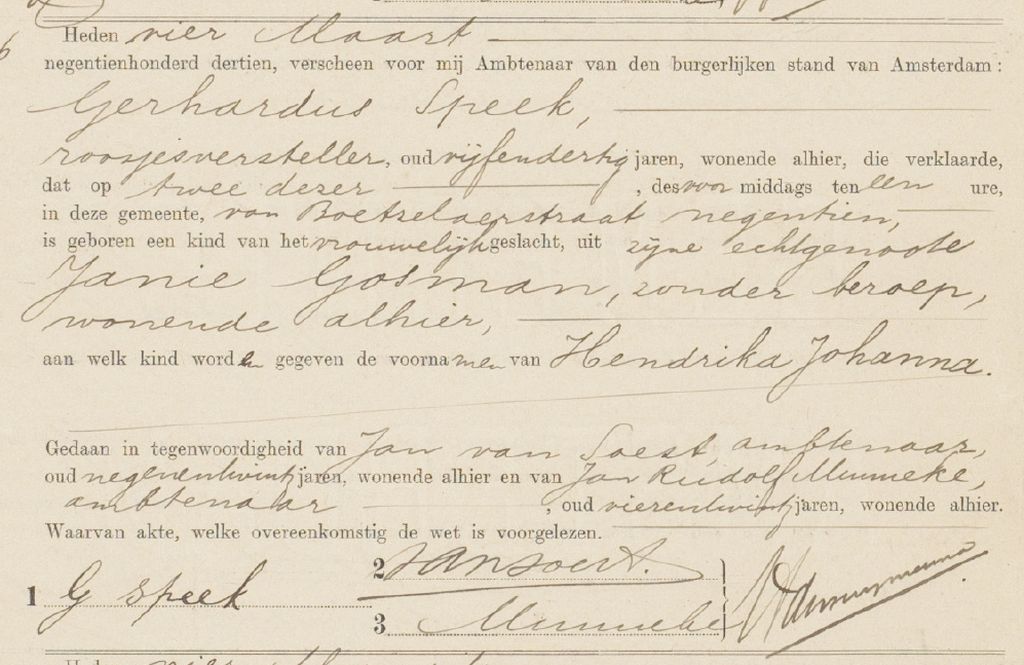 Heden vier Maart
negentienhonderd dertien, verscheen voor mij Ambtenaar van den burgerlijken stand van Amsterdam:
Gerhardus Speek,
roosjesversteller, oud vijfendertig jaren, wonende alhier, die verklaarde,
dat op twee dezer , des voor middags ten een ure,
in deze gemeente, van Boetzelaerstraat negentien,
is geboren een kind van het vrouwelijk geslacht, uit zijne echtgenoote
Janie Gosman, zonder beroep,
wonende alhier,
aan welk kind worden gegeven de voornamen van Hendrika Johanna.
Gedaan in tegenwoordigheid van Jan van Soest, ambtenaar,
oud negenentwintig jaren, wonende alhier en van Jan Rudolf Munneke,
ambtenaar , oud vierentwintig jaren, wonende alhier.
Waarvan akte, welke overeenkomstig de wet is voorgelezen.
1 G Speek
2 van Soest.
3 Munneke
Heden vier Maart